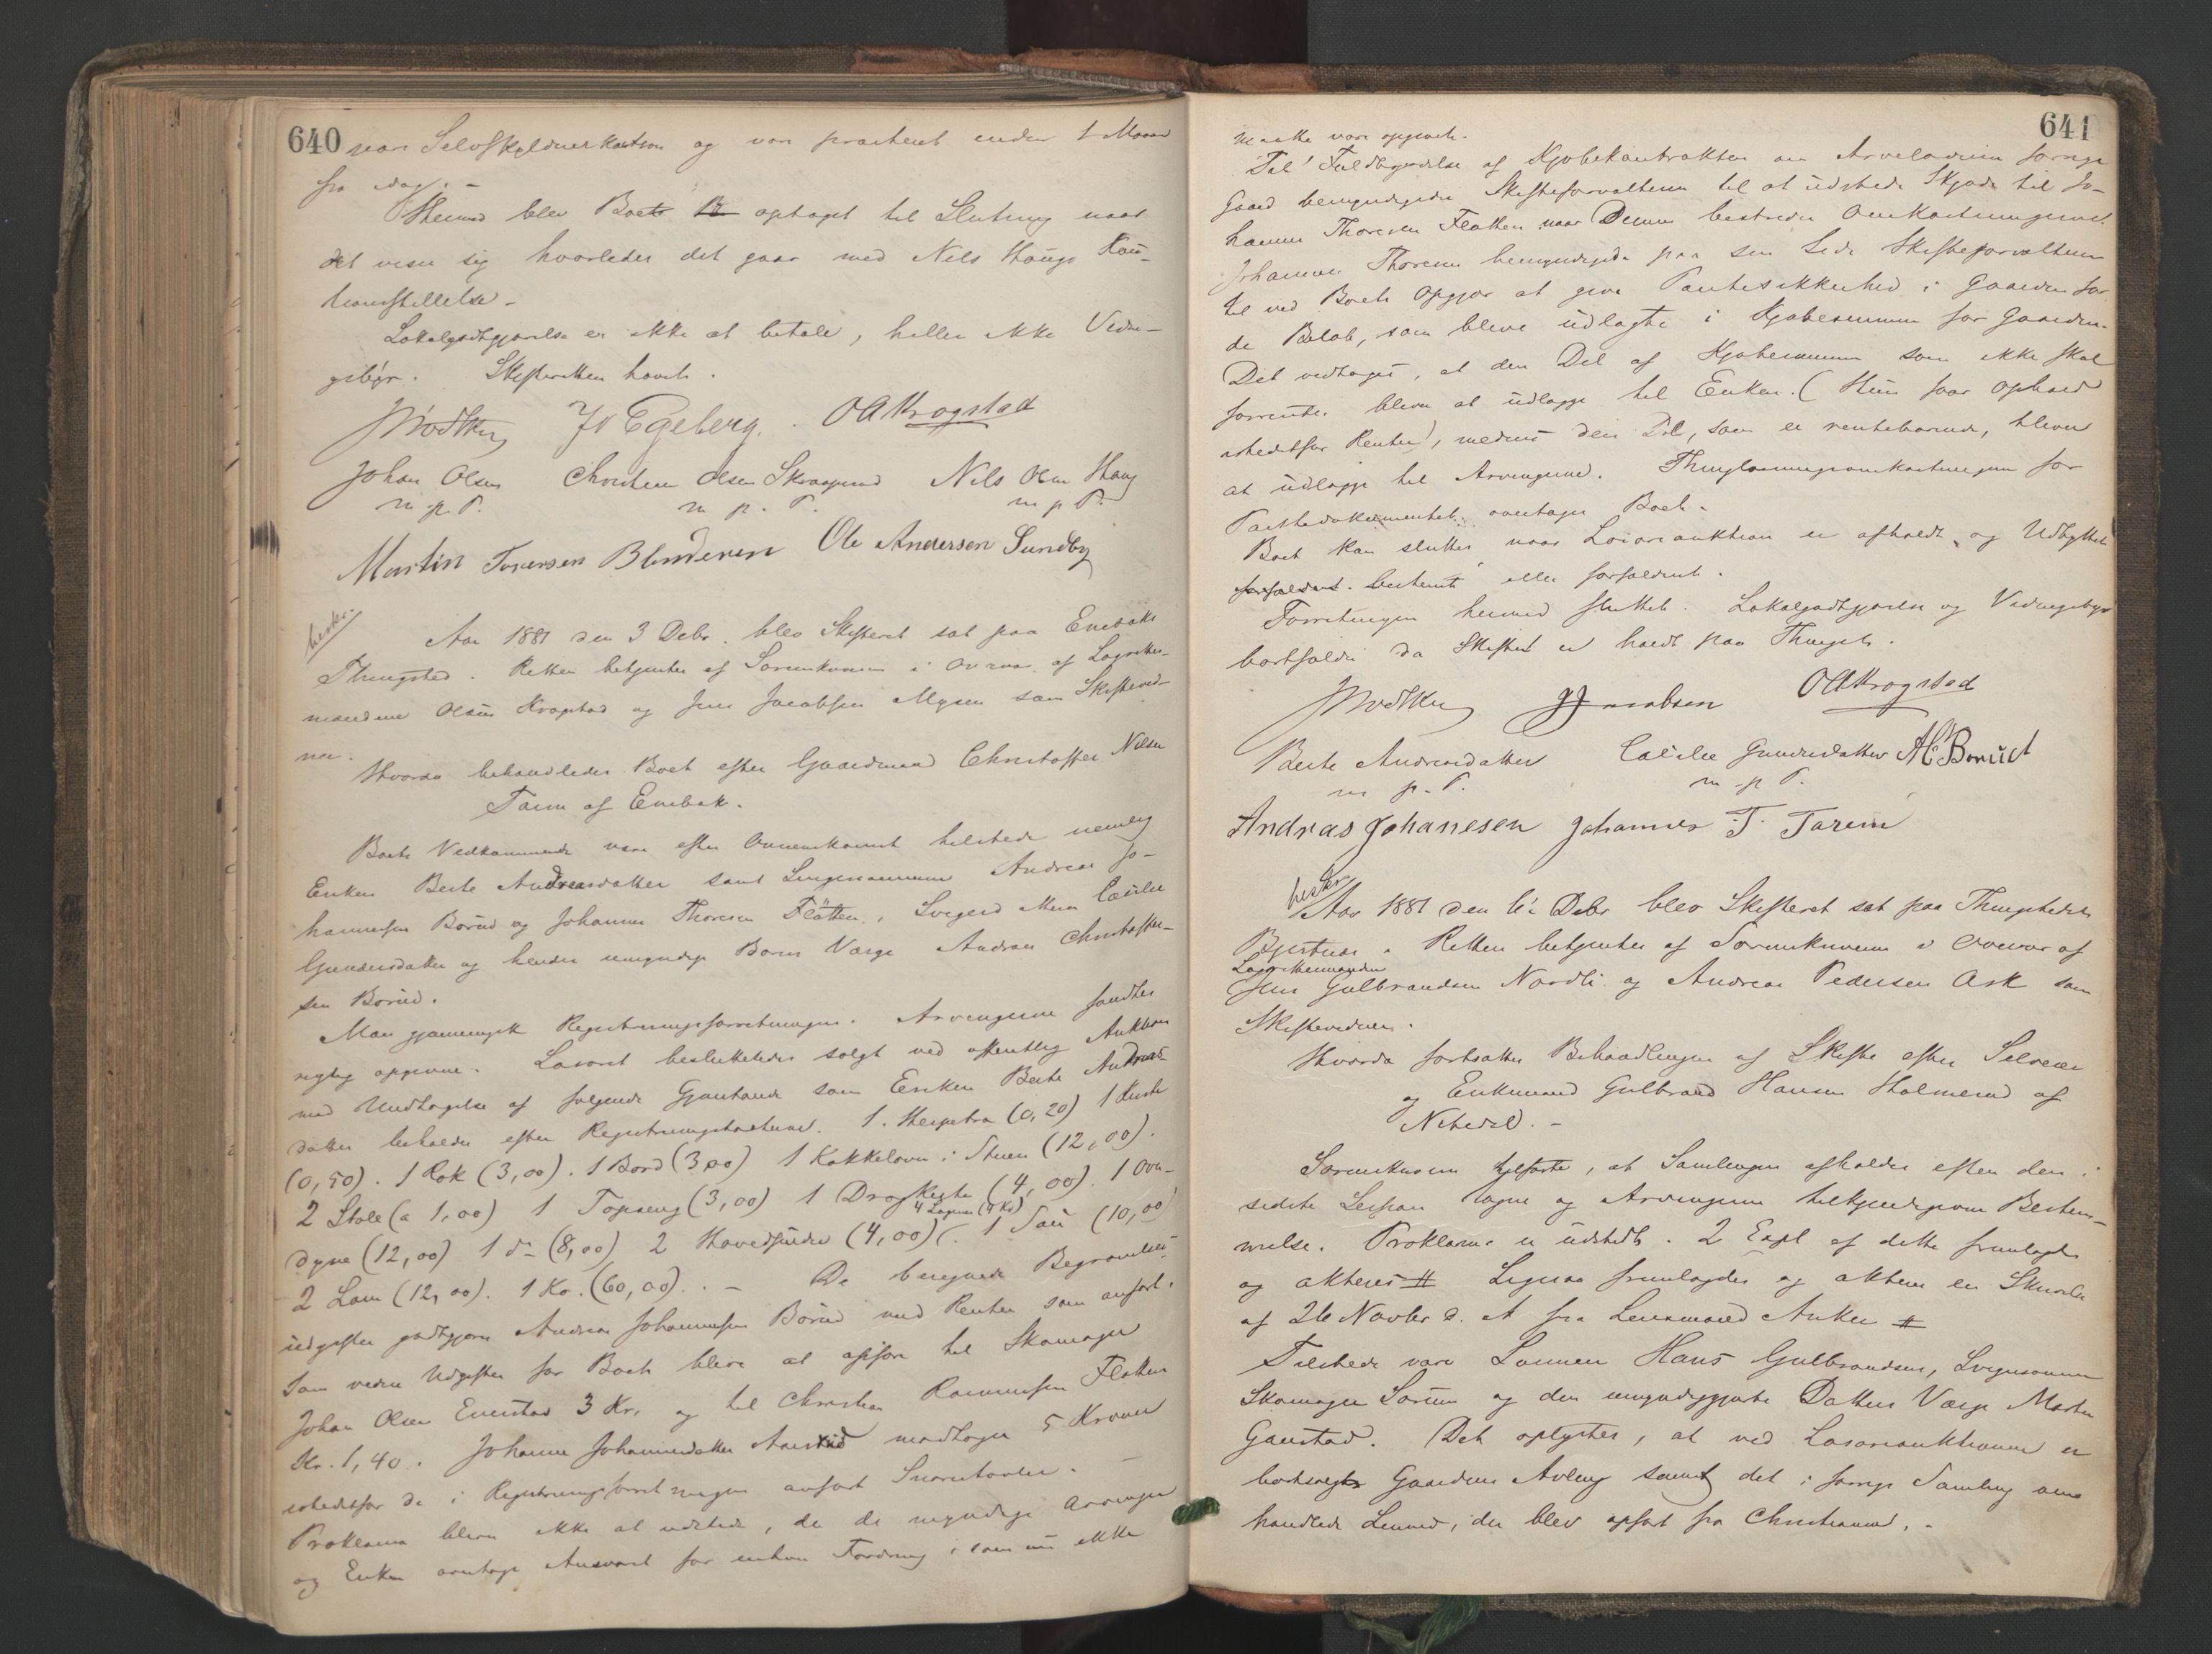 640 mod Selvskyldnerkaution og var præsteret inden 1 Maaned
fra idag. -
Hermed blev Boets optaget til Slutning naar
det viser sig hvorledes det gaar med Nils Haugs Kau-
tionsstillelse -
Lokalgodtgjørelse er ikke at betale, heller ikke Vidne-
gebyr. Skifteretten hævet.
J Egeberg. OAKrogstad
Johan Olsen Christen Olsen Nils Olsen Haug
m. p. P. m. p. P. m p P.
Martin Toversen Blinderen Ole Andersen Sundby
beskr.
Aar 1881 den 3 Debr. blev Skifteret sat paa Enebaks
Thingsted. Retten betjentes af Sorenskriveren i Overvær af Lagrettes-
mændene Olaus Krogstad og Jens Jacobsen Mysen som Skiftevid-
ner.
Hvorda behandledes Boet efter Gaardmand Christoffer Nilsen
Tarm af Enebak.
Boets Vedkommende vare efter Overenskomst tilstede nemlig
Enken Berte Andreasdatter samt Svigersønnerne Andreas Jo-
hannesen Børud og Johannes Thoresen Flatten, Svigerdatteren Cecilie
Gundersdatter og hendes umyndige Børns Værge Andreas Christoffer-
sen Børud.
Man gjennemgik Registreringsforretningen. Arvingerne fandtes
rigtig opgivne. Løsøret besluttedes solgt ved offentlig Auktion
med Undtagelse af følgende Gjenstande som Enken Berte Andreas-
datter beholder efter Registreringstaxterne. 1 (0,20) 1 Kiste
(0,50). 1 Rok (3,00). 1 Bord (3,00) 1 Kakkelovn i Stuen (12,00).
2 Stole (a 1,00) 1 Topseng (3,00) 1 Dragkiste (4,00). 1 Over-
dyne (12,00) 1 do (8,00) 2 Hovedpuder (4,00) 4 Lagner (4 Kr) . 1 Sau (10,00)
2 Lam (12,00). 1 Ko. (60,00). - De beregnede Begravelses-
udgifter godtgjøres Andreas Johannesen Børud med Renter som anført.
Som videre Udgifter for Boet bliver at opføre til Skomager
Johan Olsen Enerstad 3 Kr. og til Christian Rasmussen Flatten
Kr. 1,40. Johanne Johannesdatter modtager 5 Kroner
istedetfor de i Registreringsforretningen anført
Proklama bliver ikke at udstede, da de myndige Arvinger
og Enken overtage Ansvaret for enhver Fordring, som nu ikke
641
maatte være opgivet.
Til Fuldbyrdelse af Kjøbekontrakten om Arveladerens forrige
Gaard bemyndigedes Skifteforvalteren til at udstede Skjøde til Jo-
hannes Thoresen Flatten naar Denne bestrider Omkostningerne.
Johannes Thoresen bemyndigede paa sin Side Skifteforvalteren
til ved Boets Opgjør at give Pantesikkerhed i Gaarden for
de Beløb, som blive udlagte i Kjøbesummen for Gaarden.
Det vedtoges, at den Del af Kjøbesummen som ikke skal
forrentes bliver at udlægge til Enken. (Hun faar Ophold
istedetfor Renter), medens den Del, som er rentebærende, bliver
at udlægge til Arvingerne. Thinglæsningsomkostningerne for
Pantedokumentet overtager Boet.
Boet kan sluttes, naar Løsøreauktion er afholdt og Udbyttet
forfaldent. bestemt eller forfaldent.
Forretningen hermed sluttet. Lokalgodtgjørelse og Vidnegebyr
bortfalder da Skiftet er holdt paa Thinget.
JJacobsen OAKrogstad
Berte Andreasdatter Cecilie Gundersdatter AC Børud
m. p. P. m p P.
Andras Johanesen Johannes T. Tarem
beskr.
Aar 1881 den 6 Debr blev Skifteret sat paa Thingstedet
. Retten betjentes af Sorenskriveren i Overvær af
Lagrettemændene
Jens Gulbrandsen Nordli og Andreas Pedersen Ask som
Skiftevidner.
Hvorda fortsattes Behandlingen af Skifte efter Selveier
og Enkemand Gulbrand Hansen Holmerud af
Nitedal. -
Sorenskriveren tilførte, at Samlingen afholdes efter den i
sidste Session tagne og Arvingerne tilkjendegivne Bestem-
melse. Proklama er udstedt. 2 Expl af dette fremlagdes
og akteres # Ligesaa fremlagdes og akteres en Skrivelse
af 26 Novbr d. A fra Lensmand Anker #
Tilstede vare Sønnen Hans Gulbrandsen, Svigersønnen
Skomager Sørum og den umyndiggjorte Datters Værge Martin
Gaustad. Det oplystes, at ved Løsøreauktionen er
bortsolgt Gaardens Avling samt det i forrige Samling om-
handlede , der blev opført fra Christiania. -